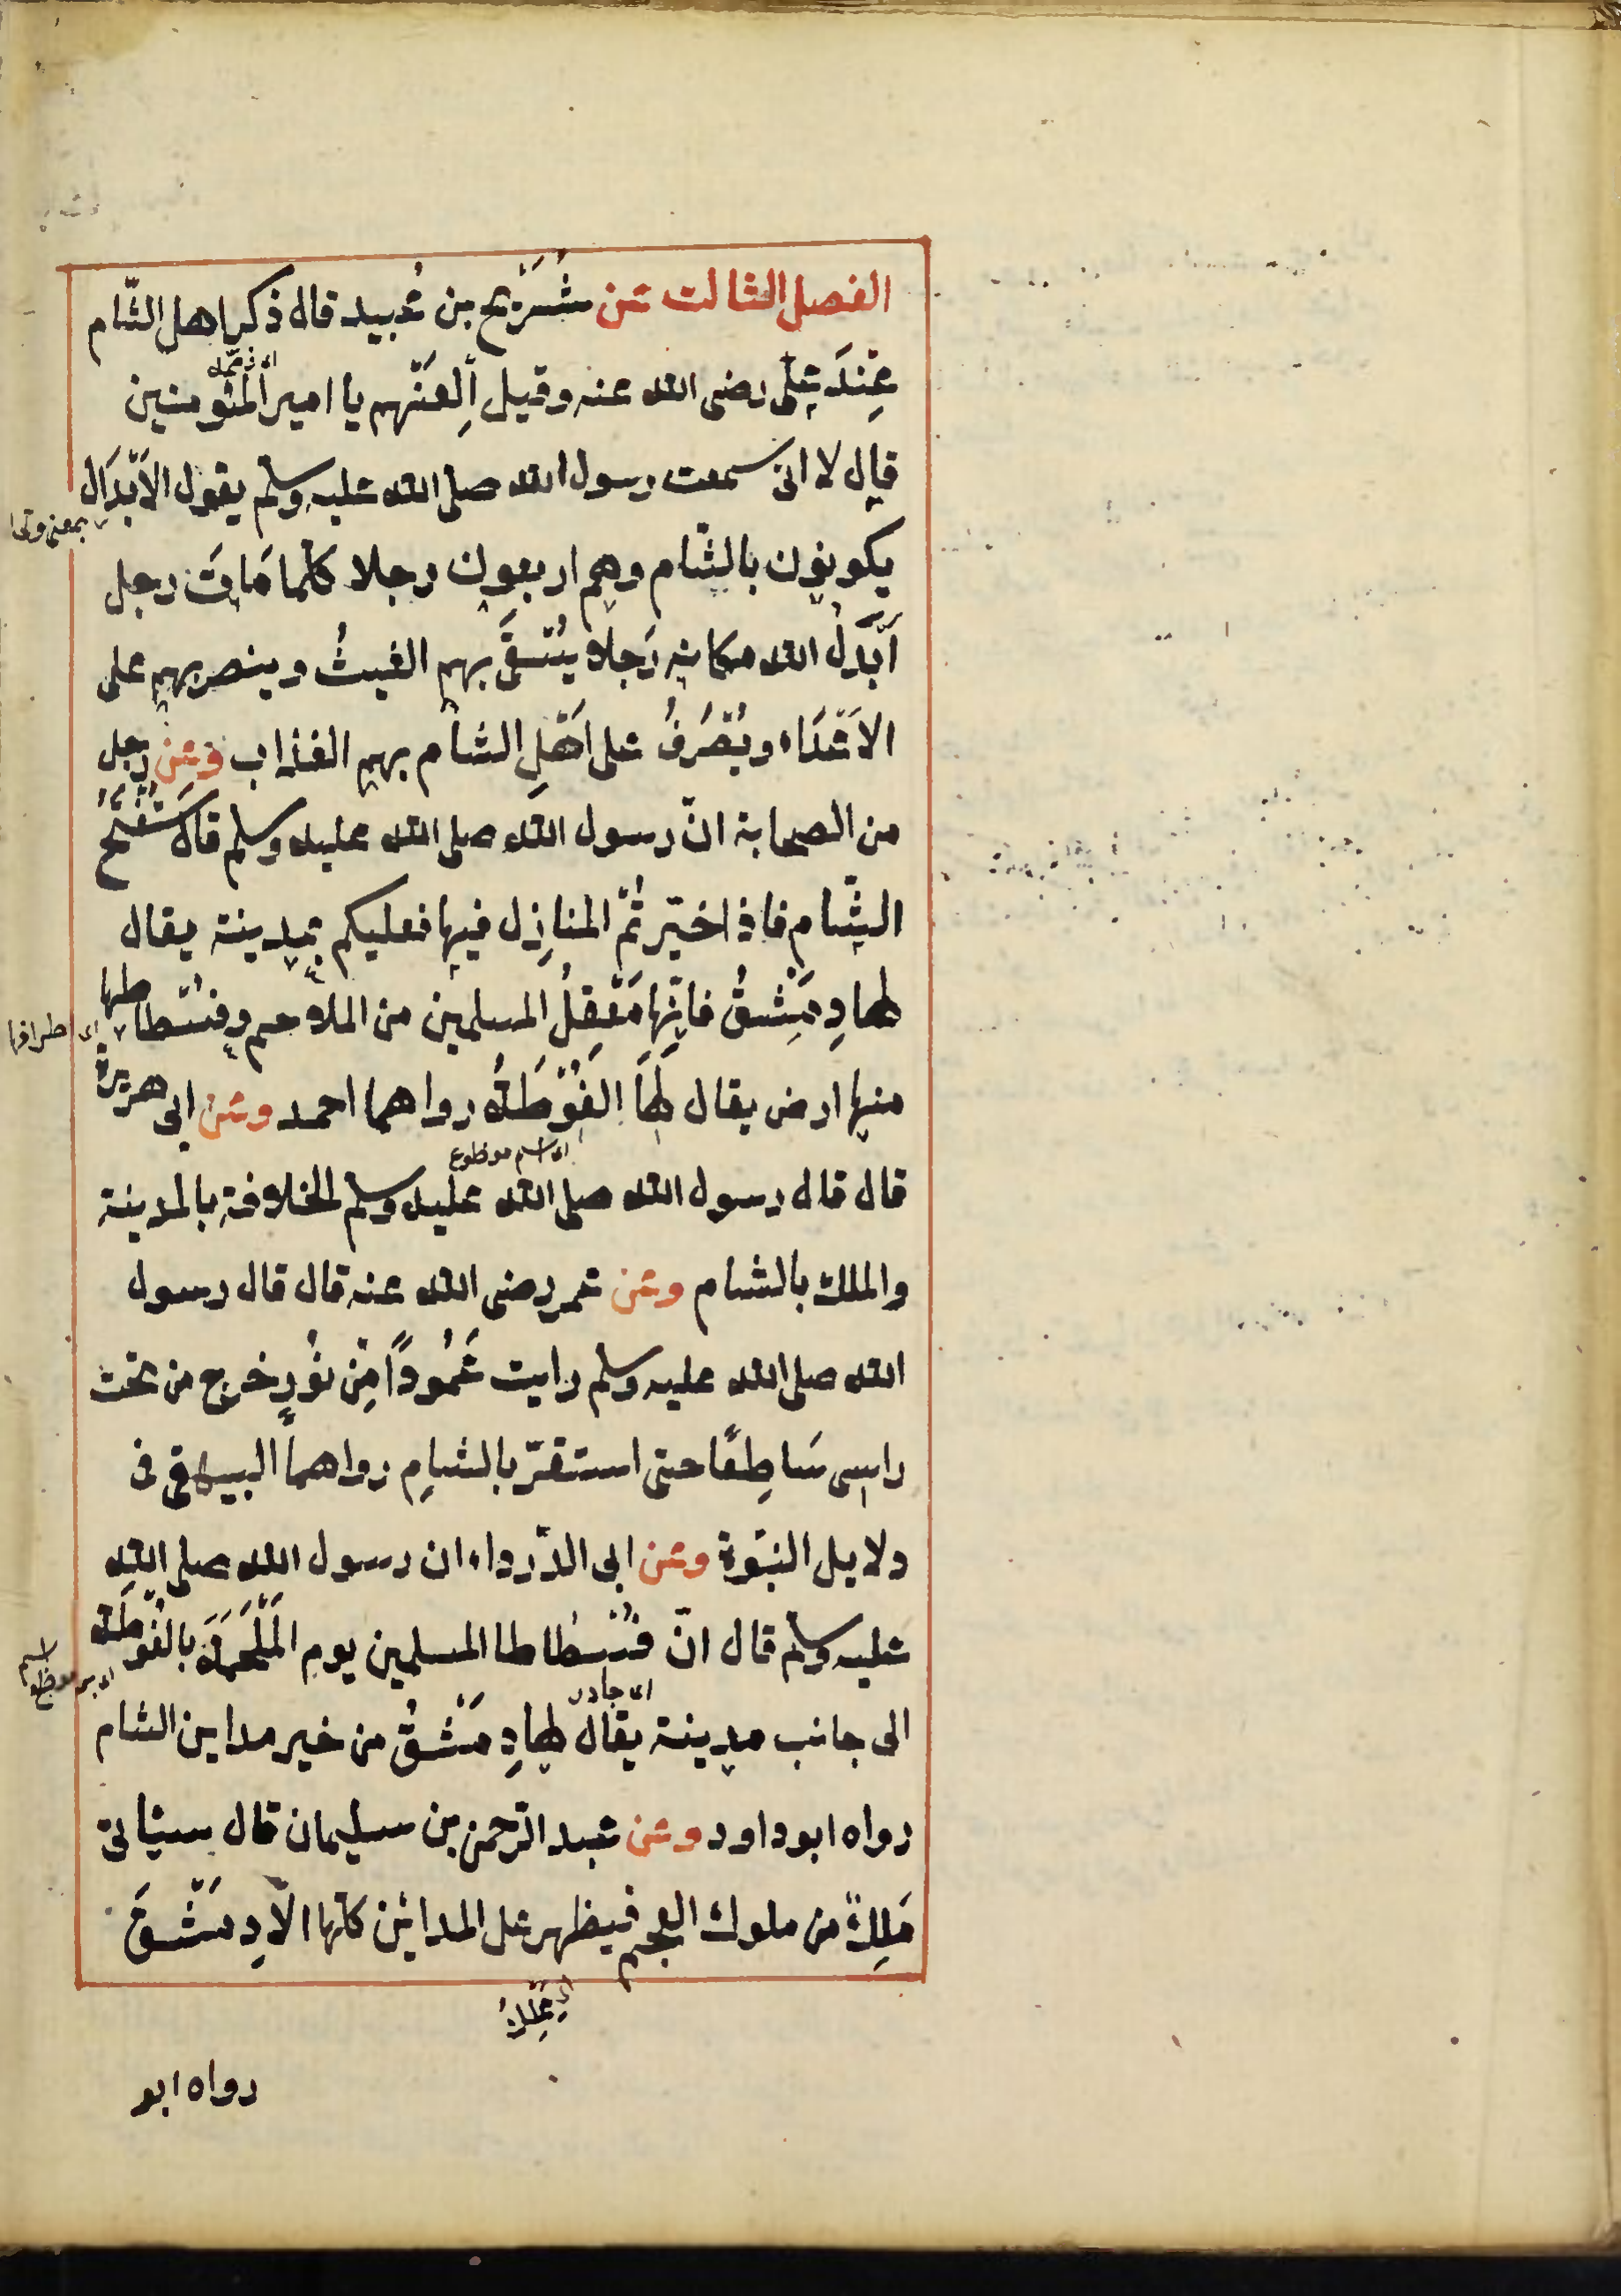 الفصل الثالث عن شُرَيْح بن عُبيد قال ذكر اهل الشّام
عِنْدَ علِى رضى الله عنه وقيل اَلِعَنْهم يا امير المؤمنين
قال لا انى سمعت رسول الله صلى الله عليه وسلم يقول الاَبْدَال
يكونون بالشّام وهم اربعون رجلا كلّما مَاتَ رجل
اَبْدَلَ الله مكانه رَجلا يُسْقَى بهم الغيثُ وينصر بهم على
الاَعْدَاء ويُصْرَفُ على اَهْلِ الشام بهم العذاب وعن رجل
من الصحابة انّ رسول الله صلى الله عليه وسلم قال سَتُفْتَحُ
الشّام فاذا خيّرتُمْ المنازِل فيها فعليكم بمدينة يقال
لها دِمَشِقُ فانّها مَعْقِلُ المسلمين من الملاحم وفُسْطاطها
اى اطرافها
منها ارض يقال لهَا الغُوْطَةُ رواهما احمد وعن ابى هريرة
قال قال رسول الله صلى الله عليه وسلم الخلافة بالمدينة
والملك بالشام وعن عمر رضى الله عنه قال قال رسول
الله صلى الله عليه وسلم رايت عَمُودًا مِنْ نُورٍ خرج من تحت
راسى سَاطِعًا حتى استقرّ بالشامِ رواهما البيهقى فى
دلايل النبوّة وعن ابى الدّرداء ان رسول الله صلى الله
عليه وسلم قال انّ فُسْطاطا المسلمين يوم المَلْحَمَة بالغُوطَة
الى جانب مدينة يقال لها دِمَشْقُ من خير مداين الشام
رواه ابو داود وعن عبد الرّحمن بن سليمان قال سياتى
مَلِكٌ من ملوك العجم فيظهر على المدائن كلّها الّا دِمَشْقَ
رواه ابو